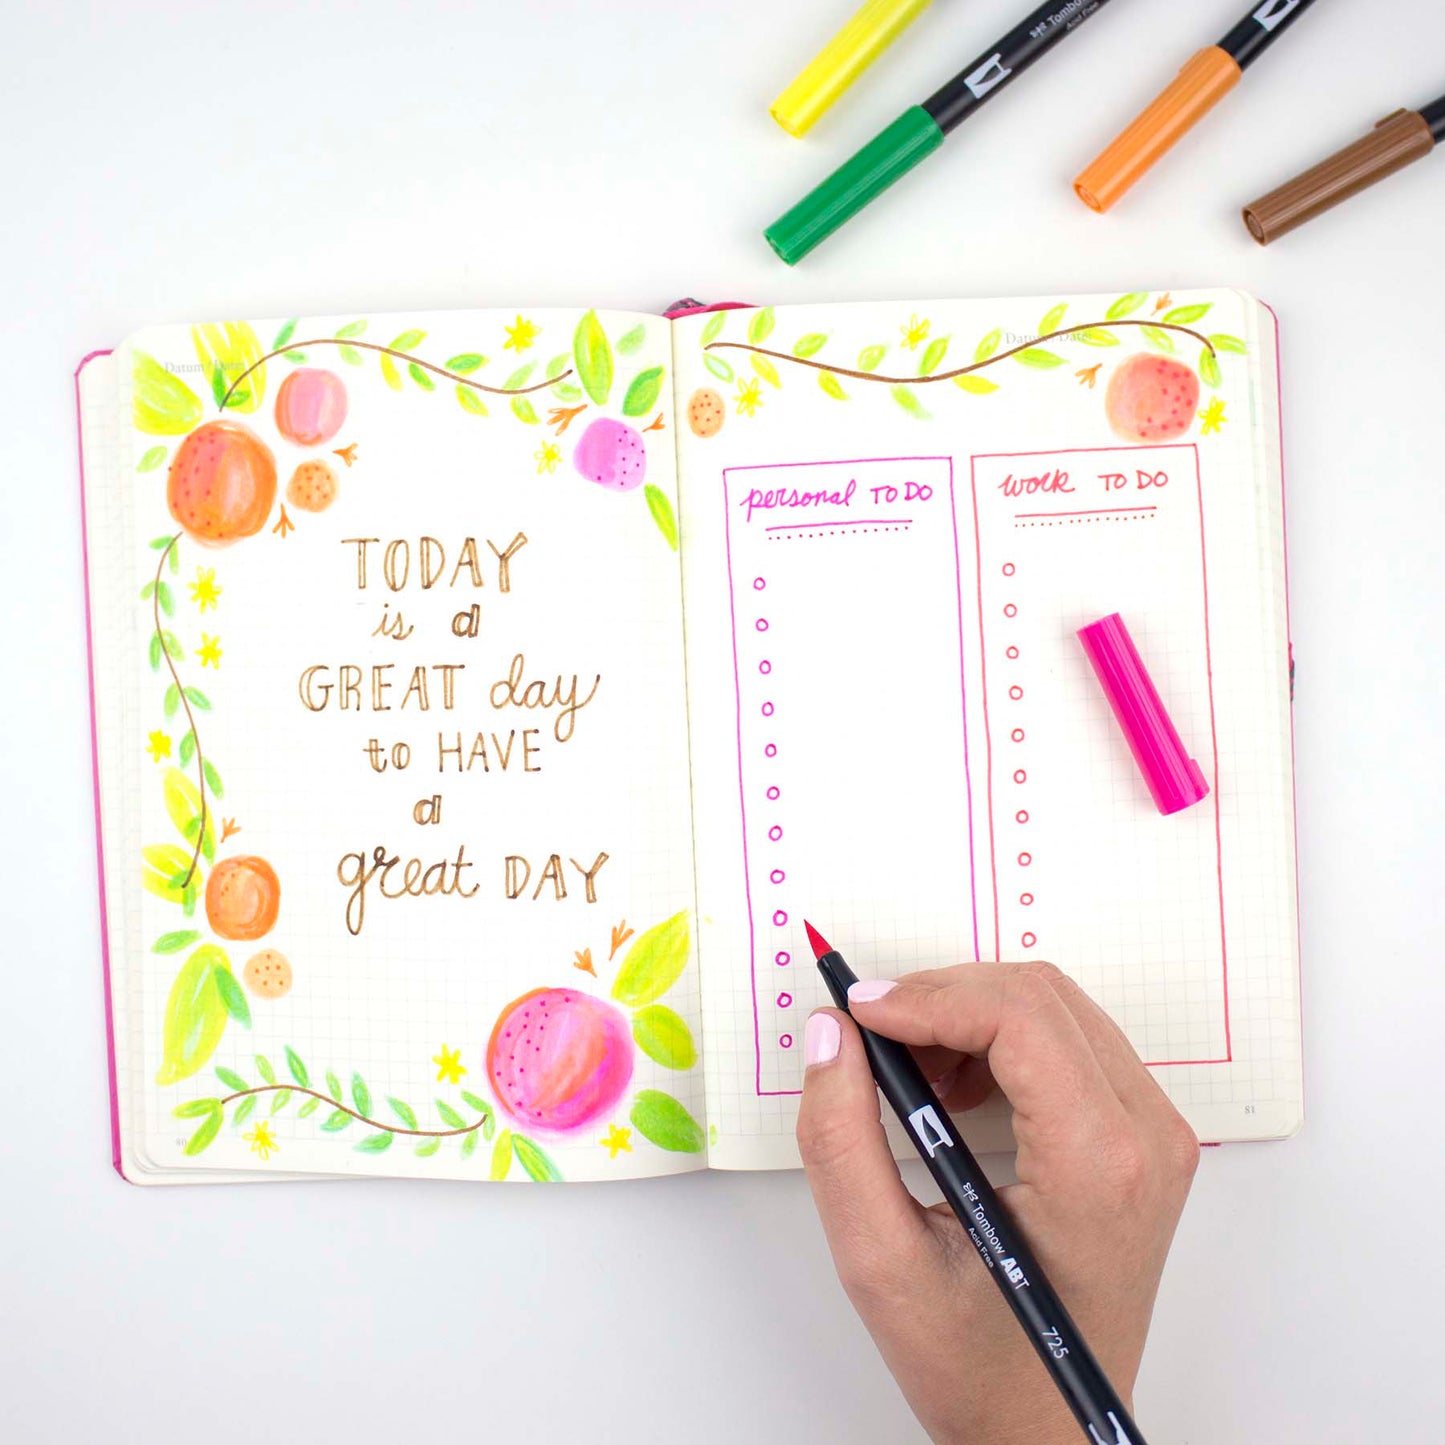 Tombow
Acid Free
Datum / Date:
TODAY
is a
GREAT day
to HAVE
a
great DAY
80
Datum / Date:
personal TO DO
work TO DO
81
Tombow ABT
Acid Free
725